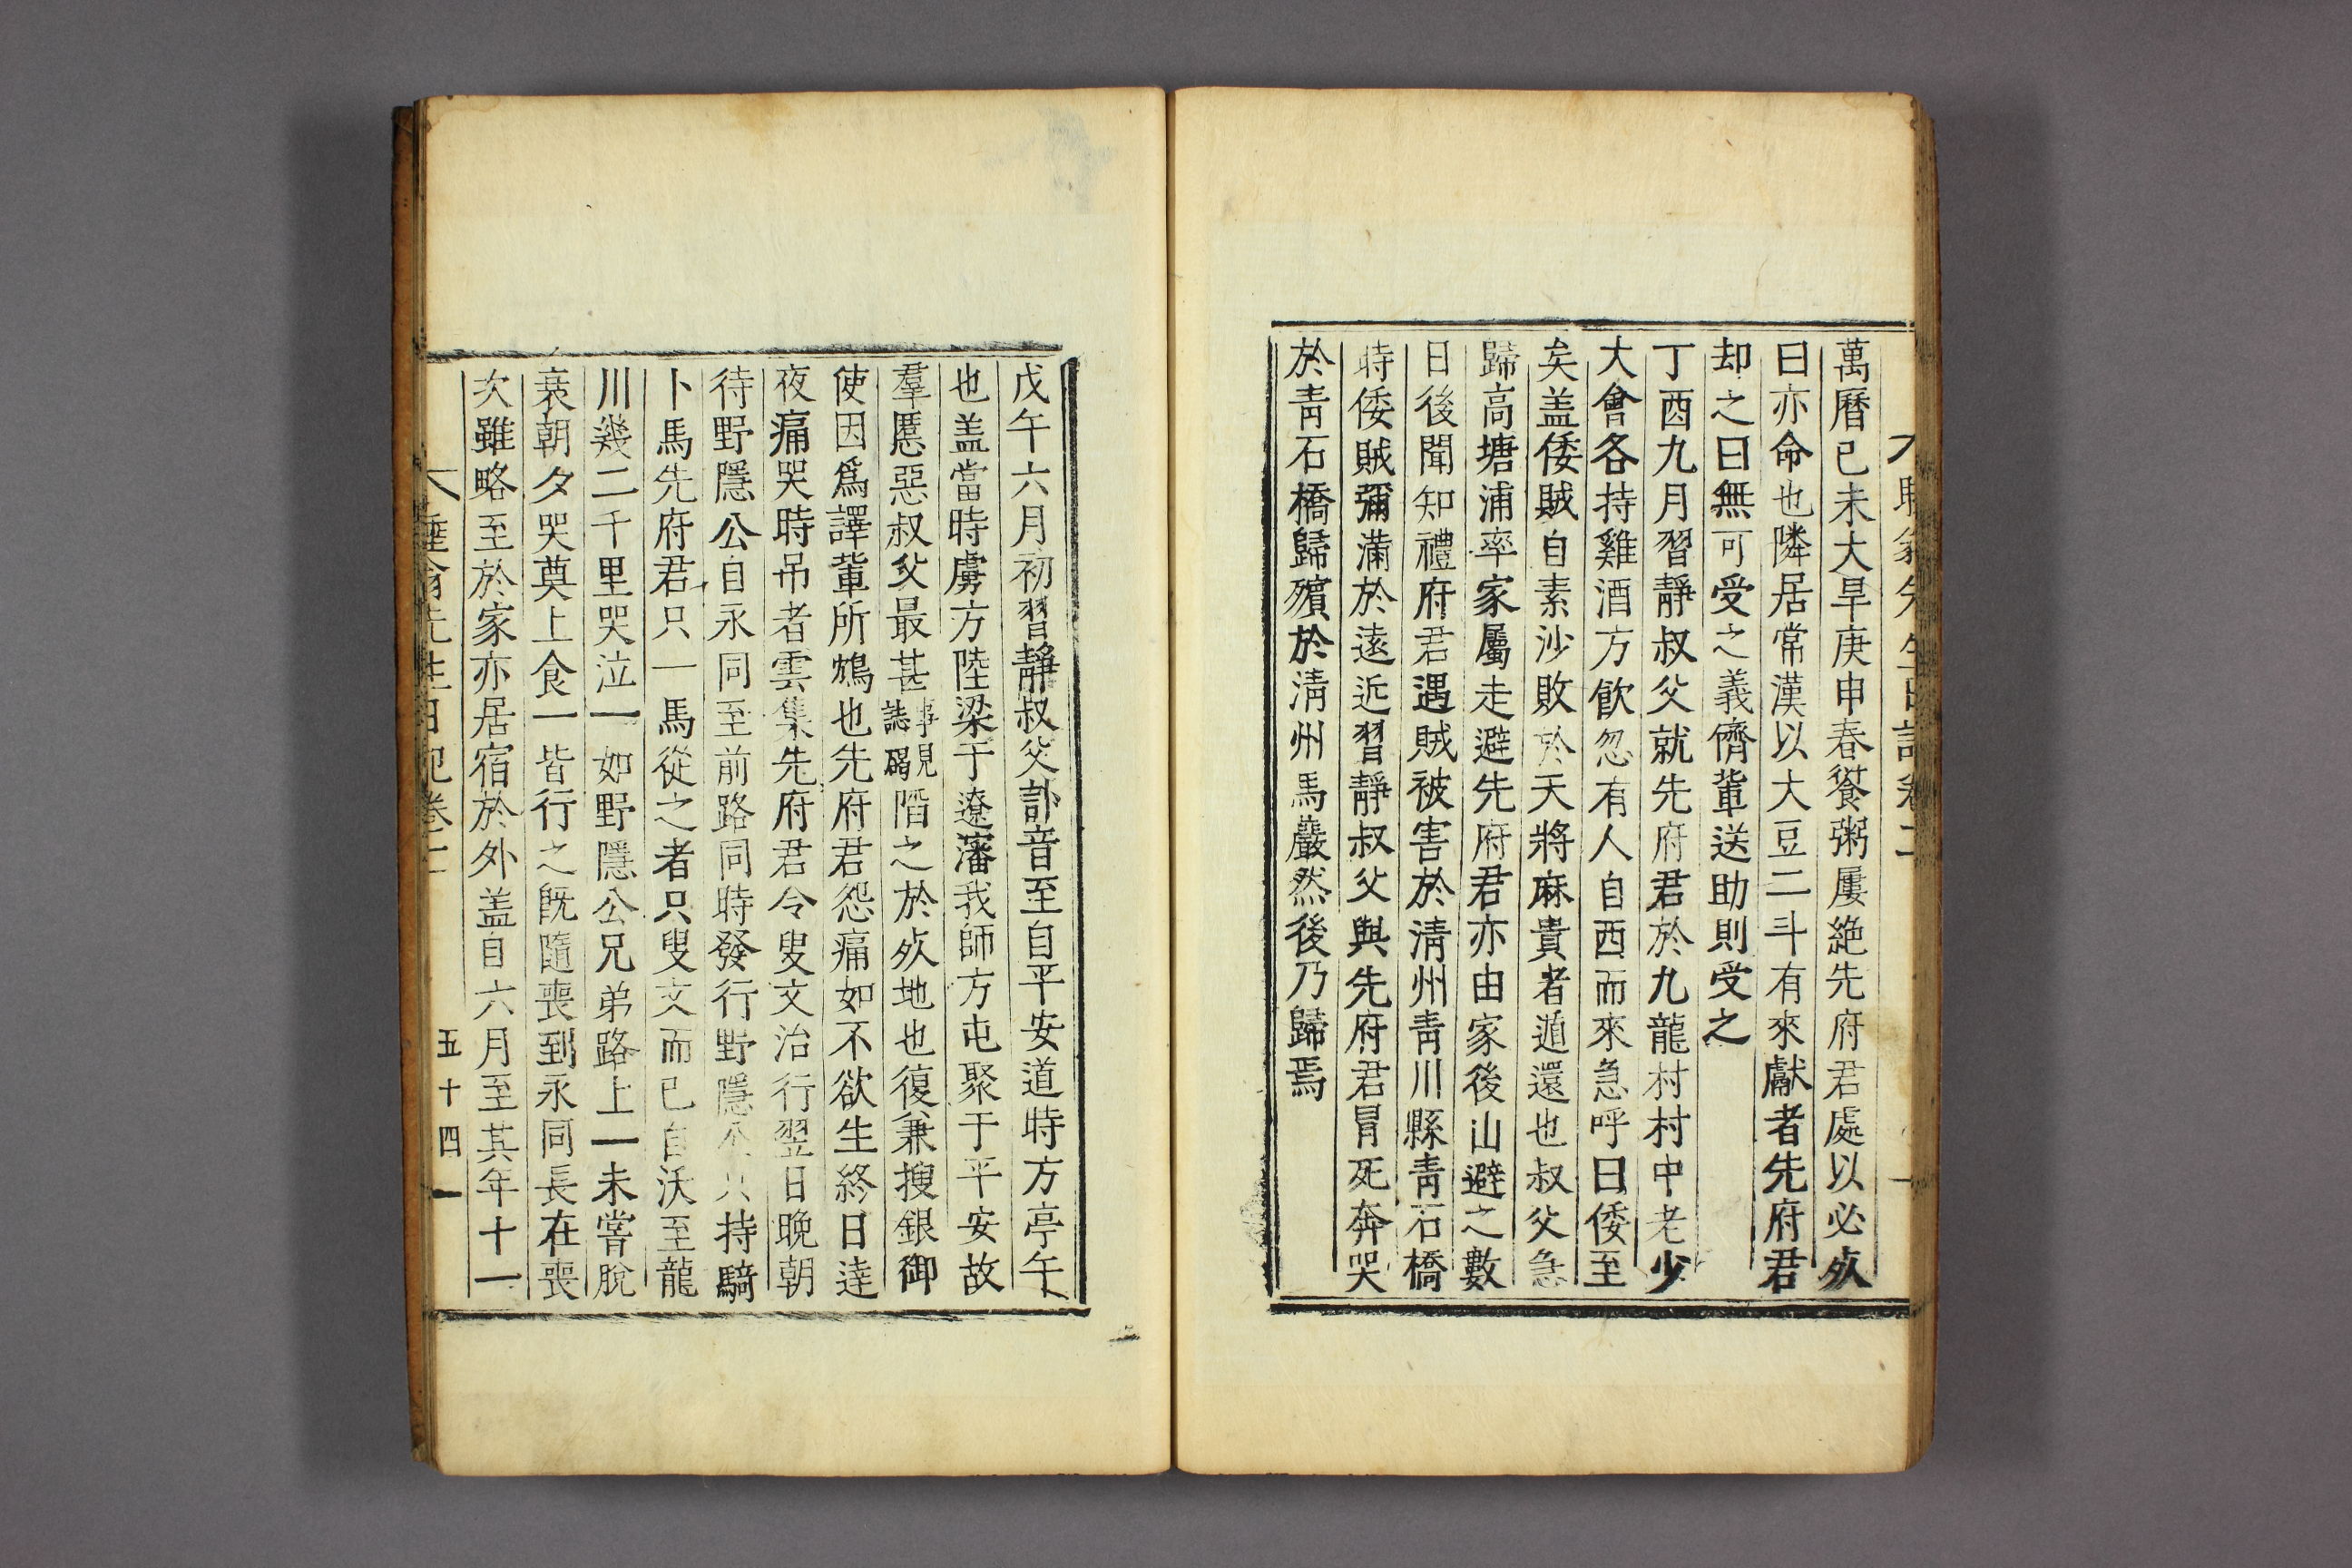 萬曆已未大旱庚申春餐粥屢絶先府君處以必㱾
曰亦命也隣居常漢以大豆二斗有來獻者先府君
却之曰無可受之義儕輩送助則受之
丁酉九月習靜叔父就先府君於九龍村村中老少
大會各持雞酒方飮忽有人自西而來急呼曰倭至
矣盖倭賊自素沙敗於天將麻貴者遁還也叔父急
歸高塘浦率家屬走避先府君亦由家後山避之數
日後聞知禮府君遇賊被害於淸州靑川縣靑石橋
時倭賊彌滿於遠近習靜叔父與先府君冒死奔哭
於靑石橋歸殯於淸州馬巖然後乃歸焉
戊午六月初習靜叔父訃音至自平安道時方亭午
也盖當時虜方陸梁于遼瀋我師方屯聚于平安故
羣慝惡叔父最甚事見誌碣階之於㱾地也復兼搜銀御
使因爲譯輩所鴆也先府君怨痛如不欲生終日達
夜痛哭時吊者雲集先府君令叟文治行翌日晩朝
待野隱公自永同至前路同時發行野隱公只持騎
卜馬先府君只一馬從之者只叟文而已自沃至龍
川幾二千里哭泣一如野隱公兄弟路上一未嘗脫
衰朝夕哭奠上食一皆行之旣隨喪到永同長在喪
次雖略至於家亦居宿於外盖自六月至其年十一
睡翁先生日記卷二
五十四